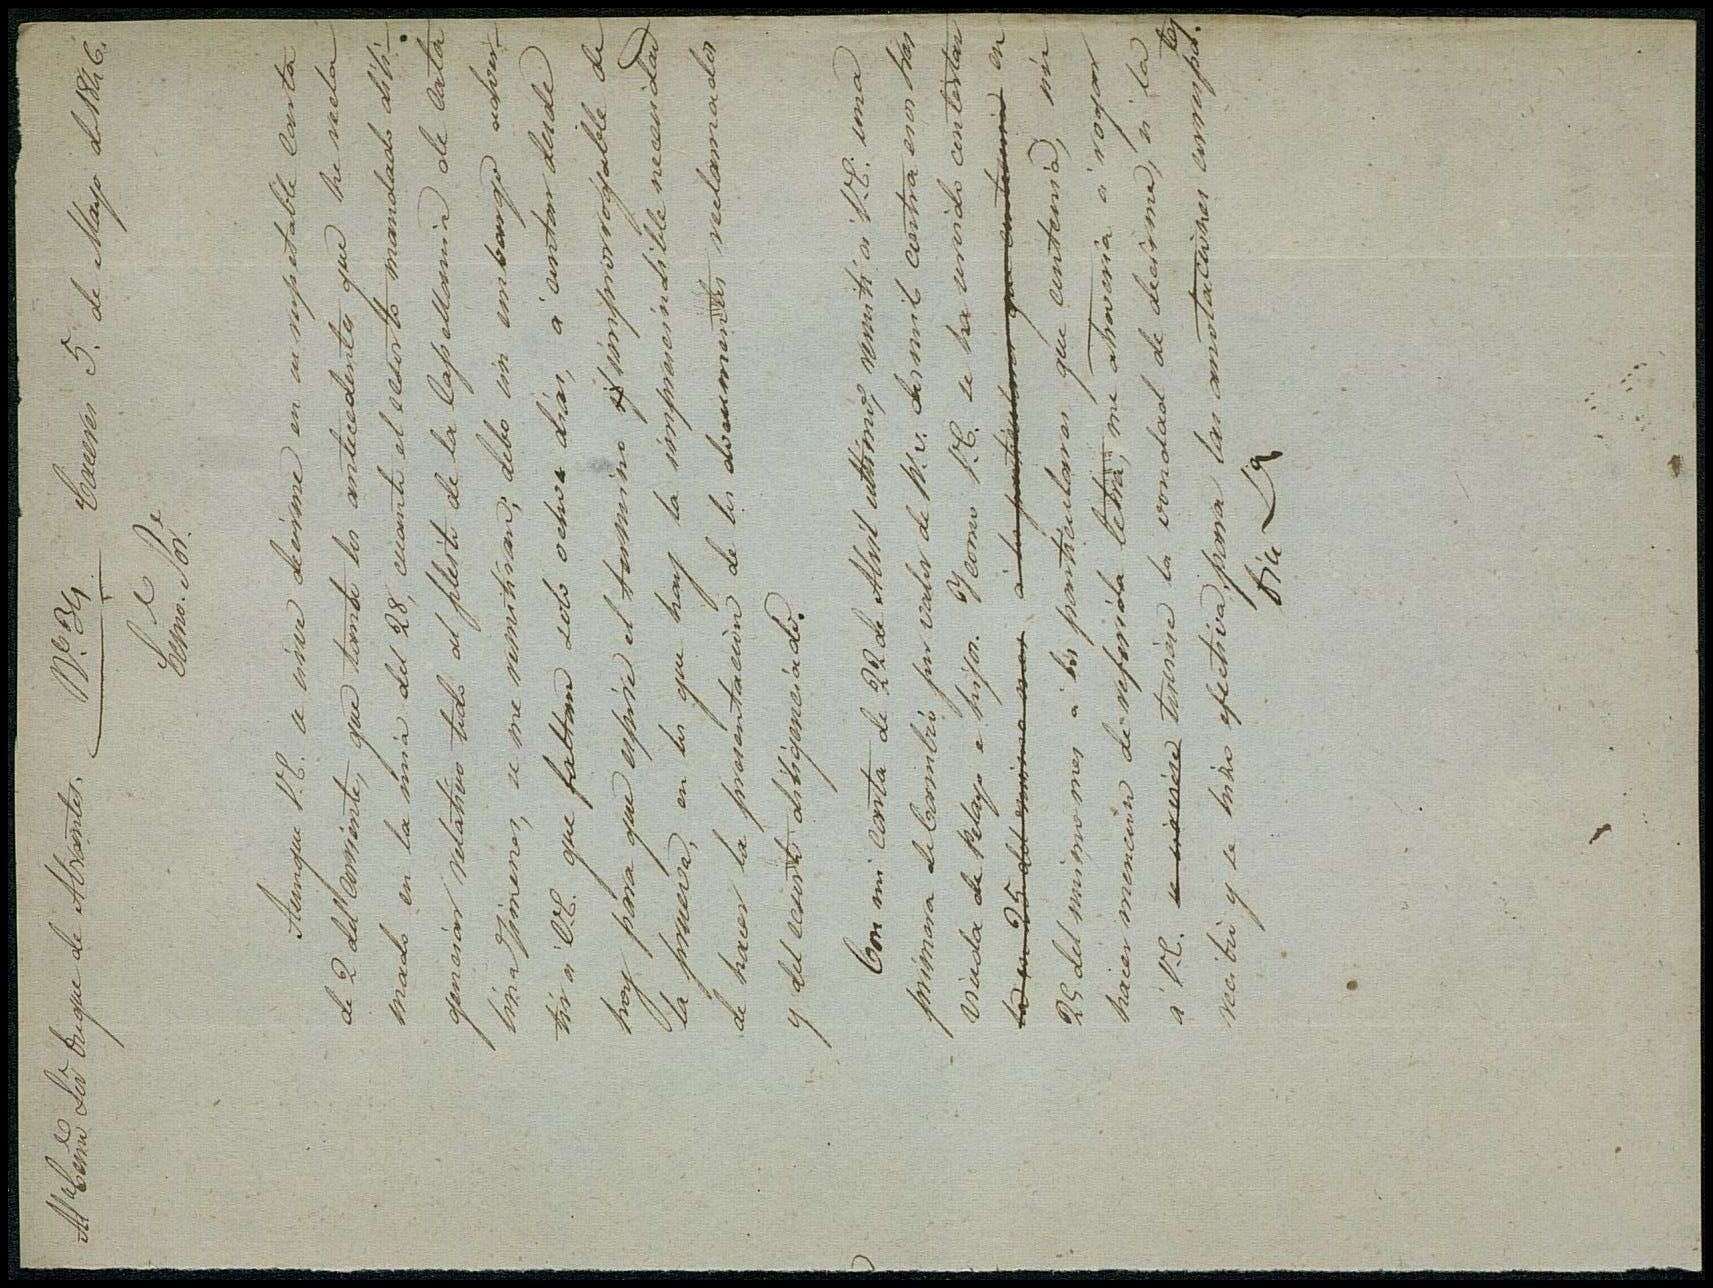 Al Exmo Sor Duque de Abrantes. Nº 34. Caceres 5. de Mayo de 1846.
Exmo. Sor.
Aunque V.E. se sirve decirme en su respetable carta
de 2 del corriente, que tanto los antecedentes que he recla
mado en la mia del 28, cuanto el escrito mandado dili-
genciar relativo todo al pleito de la Capellania de Cata
lina Ximenez, se me remitiran; debo sin embargo adver-
tir a V.E. que faltan solo ocho dias, a contar desde
hoy para que espire el termino improrrogable de
la prueva, en los que hay la imprescindible necesidad
de hacer la presentacion de los documentos reclamados
y del escrito diligenciado.
Con mi carta de 22 de Abril ultimo, remiti a V.E. una
primera de Cambio por valor de Rs. v. dosmil contra esos Sres
viuda de Pelayo e hijos. Y como V.E. se ha servido contestar
en
25 del mismo mes a los particulares que contenia, sin
hacer mencion de referida letra, me atreveria a rogar
a V.E. tuviese la vondad de decirme, si la
recibio y se hizo efectiva, para las anotaciones correspotes.